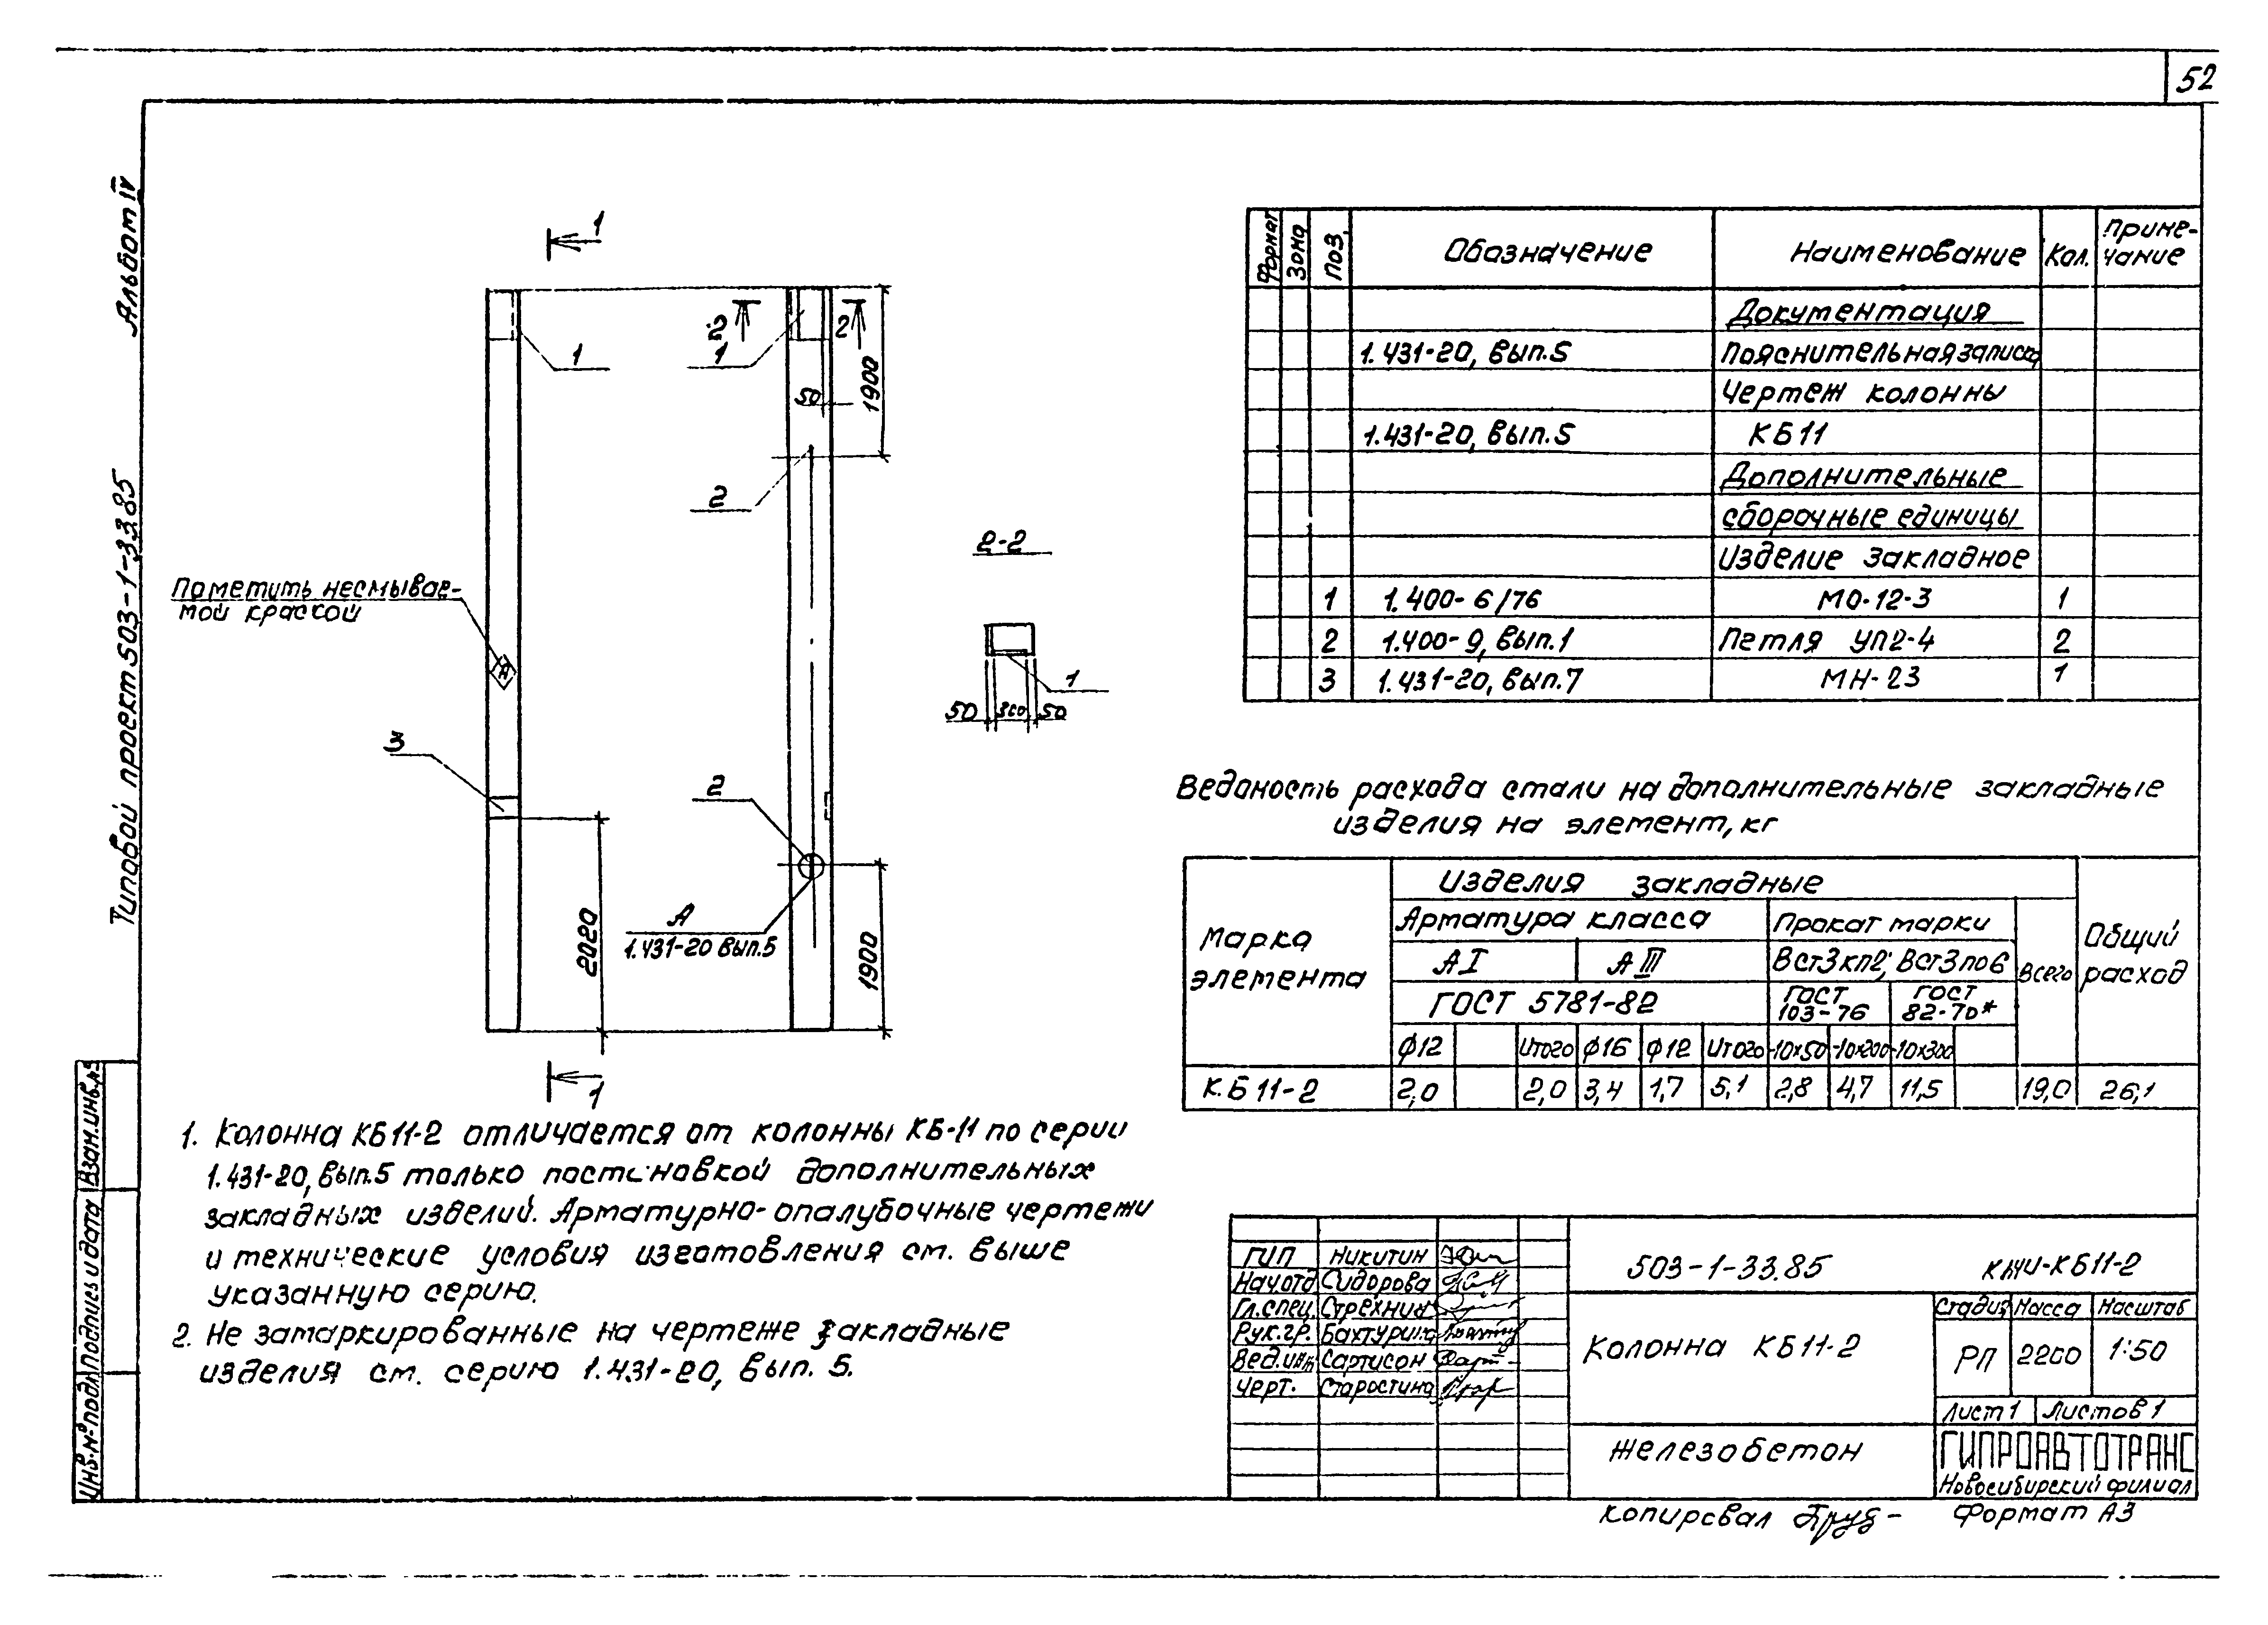 52
Альбом IV
Типовой проект 503-1-33.85
Взам.инв.№
Подпись и дата
Инв.№подл.
1
1
1
2
2
1900
50
2
Пометить несмывае-
мой краской
3
2020
2
А
1.431-20 вып.5
1900
1
2-2
1
50 300 50
Формат Зона Поз. Обозначение Наименование Кол. Приме-
чание
Документация
1.431-20, вып.5 Пояснительная записка
Чертеж колонны
1.431-20, вып.5 КБ11
Дополнительные
сборочные единицы
Изделие закладное
1 1.400-6/76 МО-12-3 1
2 1.400-9, вып.1 Петля УП2-4 2
3 1.431-20, вып.7 МН-23 1
Ведомость расхода стали на дополнительные закладные
изделия на элемент, кг
Марка
элемента
Изделия закладные
Общий
расход
Арматура класса Прокат марки
Всего
АI АIII ВСт3кп2; ВСт3пс6
ГОСТ 5781-82 ГОСТ
103-76 ГОСТ
82-70*
ф12 Итого ф16 ф12 Итого -10х50 -10х200 -10х300
КБ11-2 2,0 2,0 3,4 1,7 5,1 2,8 4,7 11,5 19,0 26,1
1. Колонна КБ11-2 отличается от колонны КБ-11 по серии
1.431-20, вып.5 только постановкой дополнительных
закладных изделий. Арматурно-опалубочные чертежи
и технические условия изготовления см. выше
указанную серию.
2. Не замаркированные на чертеже закладные
изделия см. серию 1.431-20, вып. 5.
ГИП Никитин
Нач.отд Сидорова
Гл.спец. Стрехнин
Рук.гр. Бахтурина
Вед.инж Сартисон
Черт. Старостина
503-1-33.85 КЖИ-КБ11-2
Колонна КБ11-2
Стадия Масса Масштаб
РП 2200 1:50
Лист 1 Листов 1
Железобетон
ГИПРОАВТОТРАНС
Новосибирский филиал
Копировал Формат А3